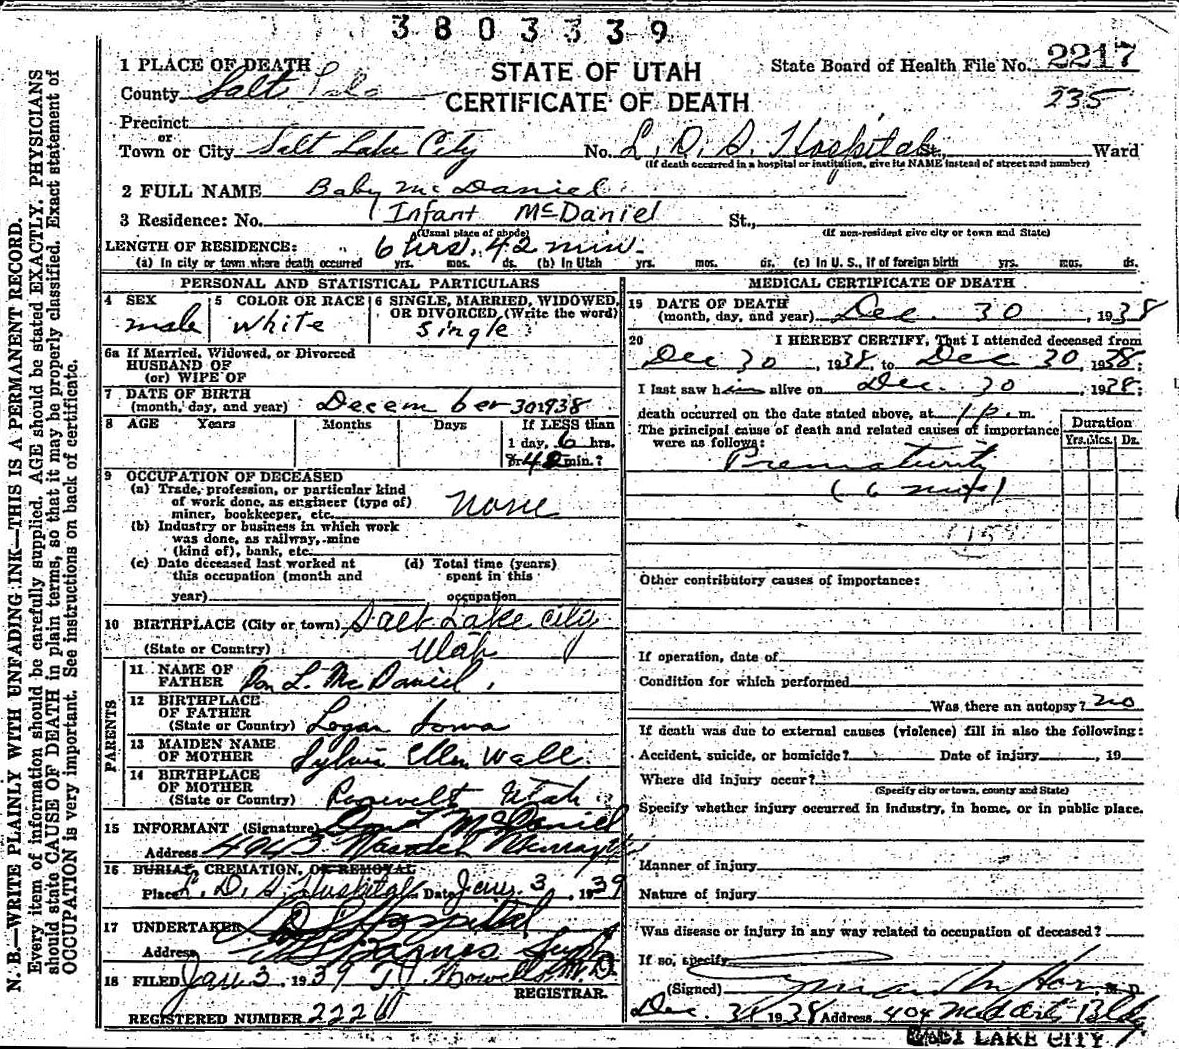 3803339
1 PLACE OF DEATH
STATE OF UTAH
State Board of Health File No. 2217
County Salt
CERTIFICATE OF DEATH
235
Precinct
or
Town or City Salt Lake City No. L. D. S. Hospital St., Ward
(If death occurred in a hospital or institution, give its NAME instead of street and number)
2 FULL NAME Baby McDaniel
3 Residence: No. Infant McDaniel St.,
(Usual place of abode) (If non-resident give city or town and State)
LENGTH OF RESIDENCE: 6 hrs. 42 min.
(a) In city or town where death occurred yrs. mos. ds. (b) In Utah yrs. mos. ds. (c) In U. S., if of foreign birth yrs. mos. ds.
PERSONAL AND STATISTICAL PARTICULARS
4 SEX 5 COLOR OR RACE 6 SINGLE, MARRIED, WIDOWED,
OR DIVORCED (Write the word)
male white single
6a If Married, Widowed, or Divorced
HUSBAND OF
(or) WIFE OF
7 DATE OF BIRTH
(month, day, and year) December 30 1938
8 AGE Years Months Days If LESS than
1 day, 6 hrs.
or 42 min.?
9 OCCUPATION OF DECEASED
(a) Trade, profession, or particular kind
of work done, as engineer (type of)
miner, bookkeeper, etc. none
(b) Industry or business in which work
was done, as railway, mine
(kind of), bank, etc.
(c) Date deceased last worked at
this occupation (month and
year)
(d) Total time (years)
spent in this
occupation
10 BIRTHPLACE (City or town) Salt Lake City
(State or Country) Utah
PARENTS
11 NAME OF
FATHER Don L. McDaniel
12 BIRTHPLACE
OF FATHER
(State or Country) Logan Iowa
13 MAIDEN NAME
OF MOTHER Sylvia Ellen Wall
14 BIRTHPLACE
OF MOTHER
(State or Country) Roosevelt Utah
15 INFORMANT (Signature) Don L McDaniel
Address 4943 Murray
16 BURIAL, CREMATION, OR REMOVAL
Place L. D. S. Hospital Date Jan. 3, 1939
17 UNDERTAKER L D S Hospital
Address Supt
18 FILED Jan 3 1939 M. D.
REGISTRAR.
REGISTERED NUMBER
MEDICAL CERTIFICATE OF DEATH
19 DATE OF DEATH
(month, day, and year) Dec. 30, 1938
20 I HEREBY CERTIFY, That I attended deceased from
Dec 30, 1938, to Dec 30, 1938;
I last saw him alive on Dec. 30, 1938;
death occurred on the date stated above, at 1 p. m.
The principal cause of death and related causes of importance
were as follows:
Duration
Yrs. Mos. Ds.
Prematurity
(6 )
159
Other contributory causes of importance:
If operation, date of
Condition for which performed
Was there an autopsy? no
If death was due to external causes (violence) fill in also the following:
Accident, suicide, or homicide? Date of injury , 19
Where did injury occur?
(Specify city or town, county and State)
Specify whether injury occurred in industry, in home, or in public place.
Manner of injury
Nature of injury
Was disease or injury in any way related to occupation of deceased?
If so, specify
(Signed) M. D.
Dec. 31 1938 Address 404 Med Arts Bldg
LAKE CITY
N. B.—WRITE PLAINLY WITH UNFADING INK—THIS IS A PERMANENT RECORD.
Every item of information should be carefully supplied. AGE should be stated EXACTLY. PHYSICIANS
should state CAUSE OF DEATH in plain terms, so that it may be properly classified. Exact statement of
OCCUPATION is very important. See instructions on back of certificate.